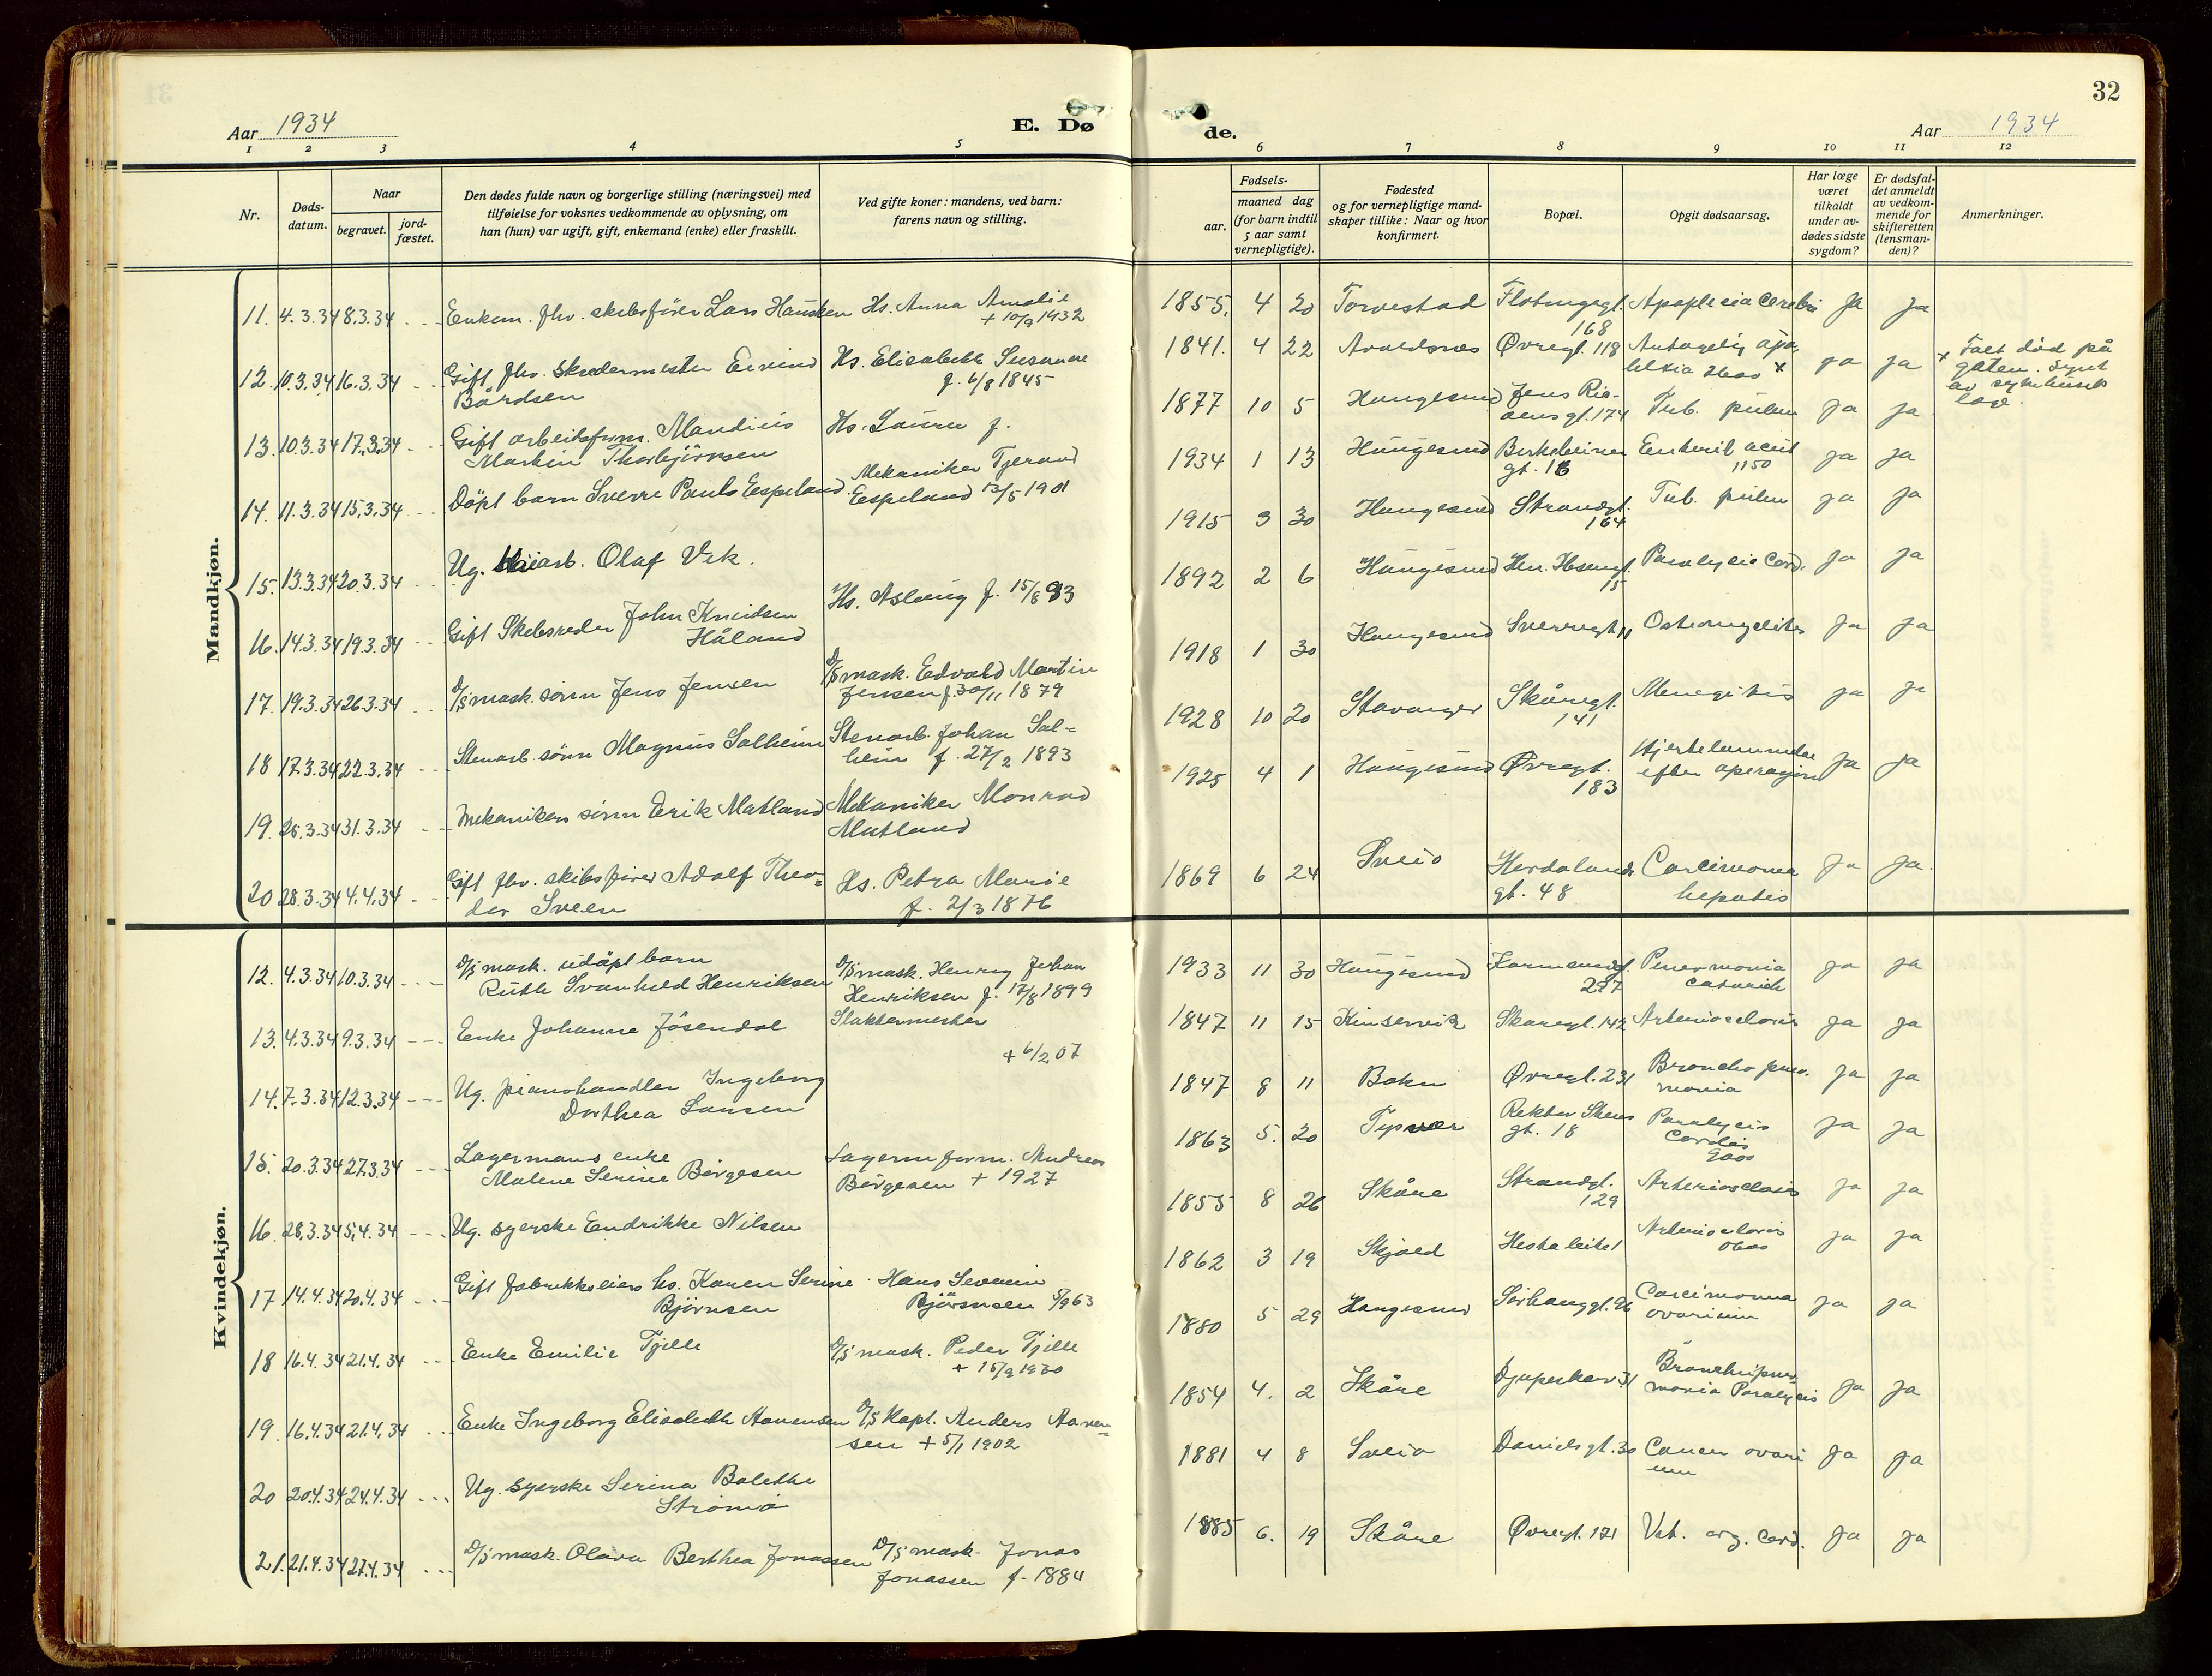 32
Aar 1934
E. Dø
de.
Aar 1934
1 2 3 4 5 6 7 8 9 10 11 12
Nr.
Døds-
datum.
Naar
begravet.
jord-
fæstet.
Den dødes fulde navn og borgerlige stilling (næringsvei) med
tilføielse for voksnes vedkommende av oplysning, om
han (hun) var ugift, gift, enkemand (enke) eller fraskilt.
Ved gifte koner: mandens, ved barn:
farens navn og stilling.
Fødsels-
aar.
maaned dag
(for barn indtil
5 aar samt
vernepligtige).
Fødested
og for vernepligtige mand-
skaper tillike: Naar og hvor
konfirmert.
Bopæl.
Opgit dødsaarsag.
Har læge
været
tilkaldt
under av-
dødes sidste
sygdom?
Er dødsfal-
det anmeldt
av vedkom-
mende for
skifteretten
(lensman-
den)?
Anmerkninger.
Mandkjøn.
11. 4.3.34 8.3.34 Enkem. fhv. skibsfører Lars Hausken Hs. Anna Amalie
+ 10/9 1932
1855. 4 20 Torvestad Flotmyrgt.
168
Apoplexia cerebri Ja Ja
12. 10.3.34 16.3.34 Gift fhv. Skredermester Eivind
Bårdsen
Hs. Elisabeth Susanne
f. 6/8 1845
1841. 4 22 Avaldsnes Øvregt. 118 Antagelig apo-
ja ja
x Falt død på
gaten. Synt
av sykehusets
læge.
13. 10.3.34 17.3.34 Gift arbeidsform. Mandius
Martin Thorbjørnsen
Hs. Laura f.
1877 10 5 Haugesund Jens Ris-
øens gt. 174
Tub. pulm ja ja
14. 11.3.34 15.3.34 Døpt barn Sverre Paulo Espeland
Mekaniker Tjerand
Eespeland 13/5 1901
1934 1 13 Haugesund Birkebeiner
gt. 16
Enterit acut
1150
ja ja
15. 13.3.34 20.3.34 Ug. Olaf Vik.
1915 3 30 Haugesund Strandgt.
164
Tub. pulm ja ja
16. 14.3.34 19.3.34 Gift Skibsreder John Knudsen
Håland
Hs. Aslaug f. 15/8 93
1892 2 6 Haugesund
15
Paralysis Cord. ja ja
17. 19.3.34 26.3.34 D/S mask. sønn Jens Jensen
D/S mask. Edvald Martin
Jensen f. 30/11 1879
1918 1 30 Haugesund Sverregt 11 Osteomyelitis Ja Ja
18 17.3.34 22.3.34 Stenarb. sønn Magnus Solheim
Stenarb. Johan Sol-
heim f. 27/2 1893
1928 10 20 Stavanger Skåregt.
141
Menegitis ja ja
19. 26.3.34 31.3.34 Mekanikers sønn Erik Matland
Mekaniker Monrad
Matland
1925 4 1 Haugesund Øvregt.
183
Hjertelammelse
efter operasjon
Ja Ja
20 28.3.34 4.4.34 Gift fhv. skibsfører Adolf Theo-
dor Sveen
Hs. Petra Marie
f. 2/3 1876
1869 6 24 Sveio Hordalands
gt. 48
Carcinoma
hepatis
Ja Ja.
Kvindekjøn.
12. 4.3.34 10.3.34 D/S mask. udøpt barn
Ruth Svanhild Henriksen
D/S mask. Henry Johan
Henriksen f. 17/8 1899
1933 11 30 Haugesund Karmsundgt.
297
Pneumonia
catarrh
ja ja
13. 4.3.34 9.3.34 Enke Johanne Jøsendal
Slaktermester
+ 6/2 07
1847 11 15 Kinservik Skåregt. 142 Arteriosclosis ja ja
14. 7.3.34 12.3.34 Ug. pianohandler Ingeborg
Dorthea Larsen
1847 8 11 Bokn Øvregt. 231 Broncho pneu.
monia
ja ja
15. 20.3.34 27.3.34 Lagermans enke
Malene Serine Børgesen
Lagerm form. Andreas
Børgesen + 1927
1863 5. 20 Tysvær Rektor Steens
gt. 18
Paralysis
Cordis
ja ja
16. 28.3.34 5.4.34 Ug. syerske Endrikke Nilsen
1855 8 26 Skåre Strandgt.
129
Arteriosclosis ja ja
17 14.4.34 20.4.34 Gift fabrikkseiers hs. Karen Serine
Bjørnsen
Hans Severin
Bjørnsen 5/9 63
1862 3 19 Skjold Hestaleitet Arteriosclosis
ja ja
18 16.4.34 21.4.34 Enke Emilie Tjelle
D/S mask. Peder Tjelle
+ 15/9 1930
1880 5 29 Haugesund Sørhauggt. 96 Carcinoma
ovarium
ja ja
19 16.4.34 21.4.34 Enke Ingeborg Elisabeth Aanensen
D/S Kapt. Anders Aanen-
sen + 5/1 1902
1854 4. 2 Skåre Djupaskar 31 Bronchipneu-
monia Paralysis
ja ja
20 20.4.34 24.4.34 Ug. syerske Serina Bolethe
Strømø
1881 4 8 Sveio Danielsgt. 30 Cancer ovari
um
ja ja
21. 21.4.34 27.4.34 D/S mask. Olava Berthea Jonassen
D/S mask. Jonas
Jonassen f. 1884
1885 6. 19 Skåre Øvregt. 121 Vit. org. cord. ja ja